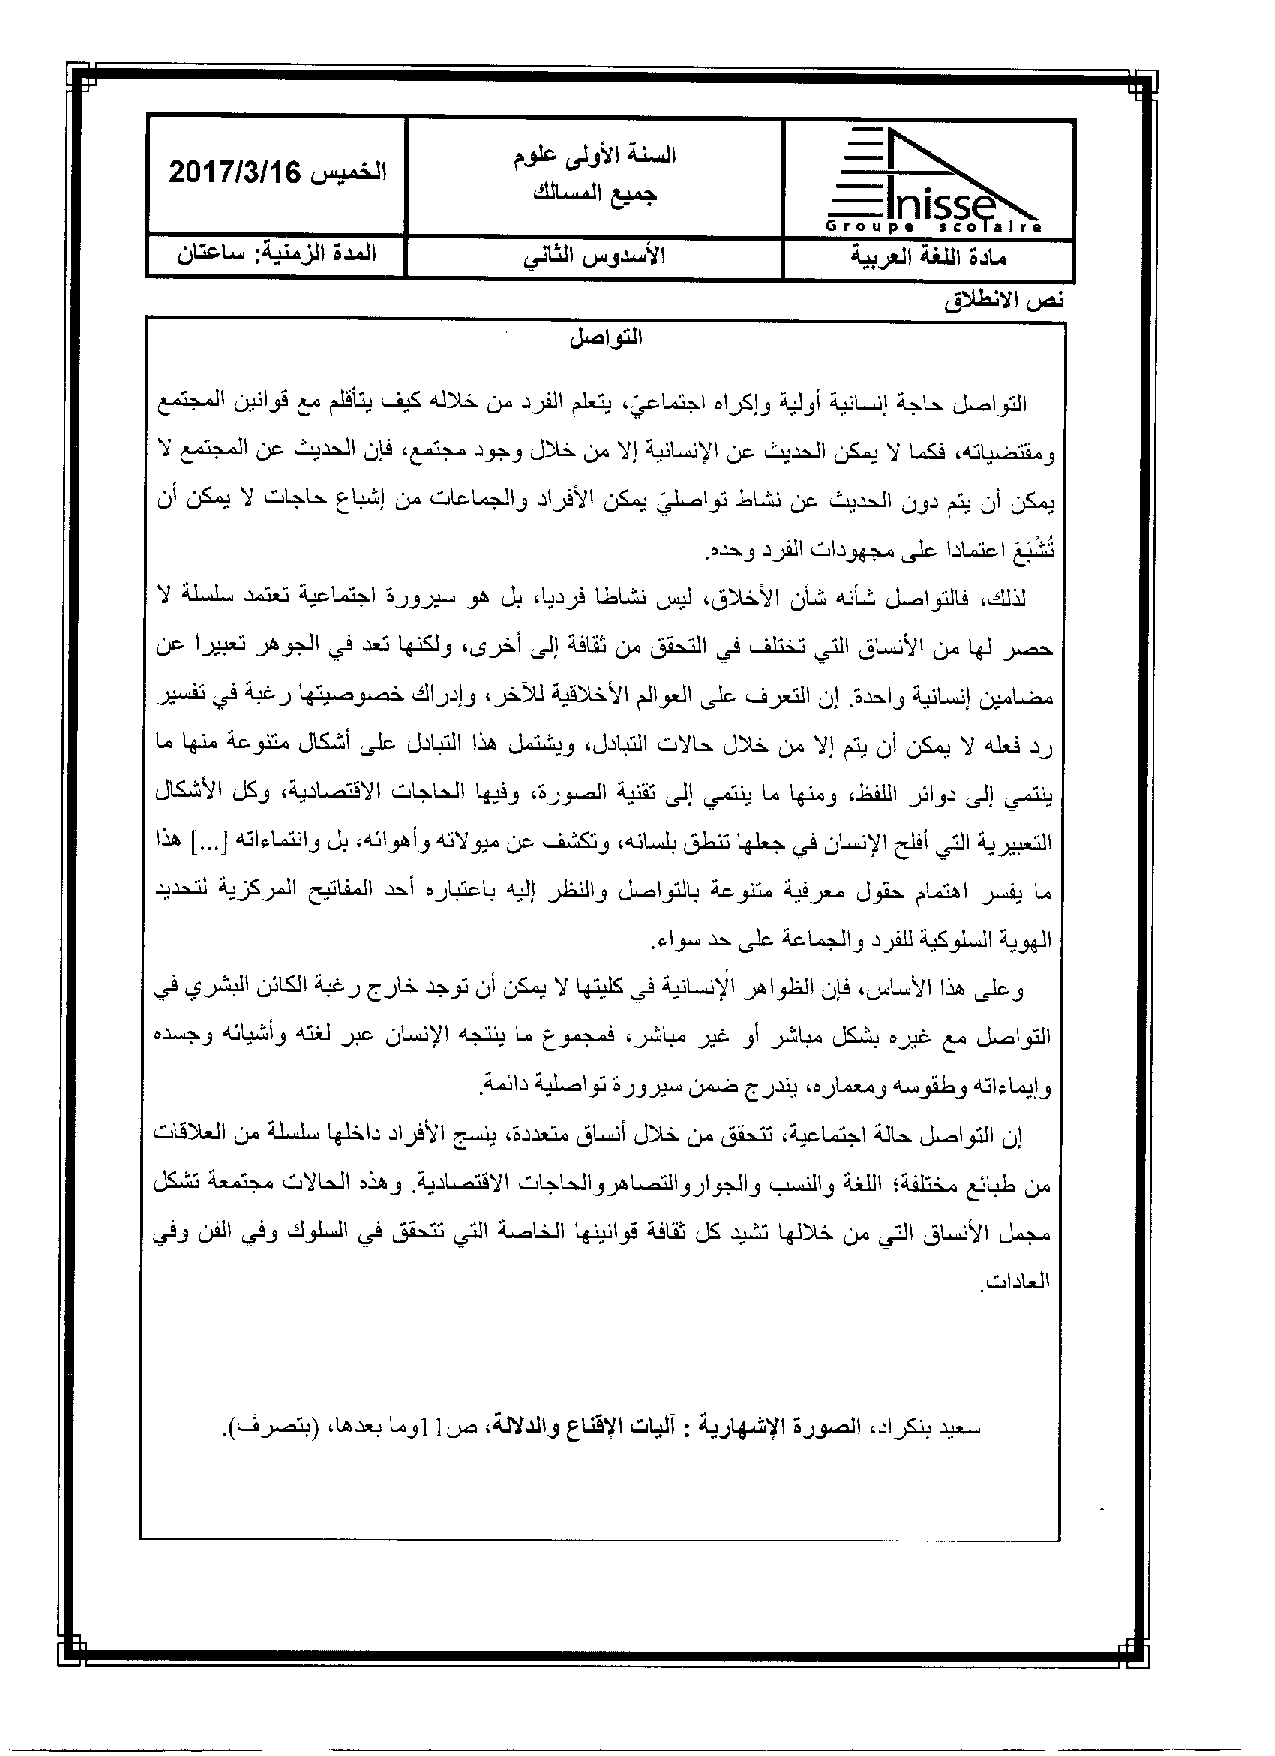 السنة الأولى علوم
جميع المسالك
الخميس 2017/3/16
Anisse
Groupe scolaire
مادة اللغة العربية
الأسدوس الثاني
المدة الزمنية: ساعتان
نص الانطلاق
التواصل
التواصل حاجة إنسانية أولية وإكراه اجتماعيّ، يتعلم الفرد من خلاله كيف يتأقلم مع قوانين المجتمع
ومقتضياته، فكما لا يمكن الحديث عن الإنسانية إلا من خلال وجود مجتمع، فإن الحديث عن المجتمع لا
يمكن أن يتم دون الحديث عن نشاط تواصليّ يمكن الأفراد والجماعات من إشباع حاجات لا يمكن أن
تُشْبَعَ اعتمادا على مجهودات الفرد وحده.
لذلك، فالتواصل شأنه شأن الأخلاق، ليس نشاطا فرديا، بل هو سيرورة اجتماعية تعتمد سلسلة لا
حصر لها من الأنساق التي تختلف في التحقق من ثقافة إلى أخرى، ولكنها تعد في الجوهر تعبيرا عن
مضامين إنسانية واحدة. إن التعرف على العوالم الأخلاقية للآخر، وإدراك خصوصيتها رغبة في تفسير
رد فعله لا يمكن أن يتم إلا من خلال حالات التبادل، ويشتمل هذا التبادل على أشكال متنوعة منها ما
ينتمي إلى دوائر اللفظ، ومنها ما ينتمي إلى تقنية الصورة، وفيها الحاجات الاقتصادية، وكل الأشكال
التعبيرية التي أفلح الإنسان في جعلها تنطق بلسانه، وتكشف عن ميولاته وأهوائه، بل وانتماءاته [...] هذا
ما يفسر اهتمام حقول معرفية متنوعة بالتواصل والنظر إليه باعتباره أحد المفاتيح المركزية لتحديد
الهوية السلوكية للفرد والجماعة على حد سواء.
وعلى هذا الأساس، فإن الظواهر الإنسانية في كليتها لا يمكن أن توجد خارج رغبة الكائن البشري في
التواصل مع غيره بشكل مباشر أو غير مباشر، فمجموع ما ينتجه الإنسان عبر لغته وأشيائه وجسده
وإيماءاته وطقوسه ومعماره، يندرج ضمن سيرورة تواصلية دائمة.
إن التواصل حالة اجتماعية، تتحقق من خلال أنساق متعددة، ينسج الأفراد داخلها سلسلة من العلاقات
من طبائع مختلفة؛ اللغة والنسب والجواروالتصاهروالحاجات الاقتصادية. وهذه الحالات مجتمعة تشكل
مجمل الأنساق التي من خلالها تشيد كل ثقافة قوانينها الخاصة التي تتحقق في السلوك وفي الفن وفي
العادات.
سعيد بنكراد، الصورة الإشهارية : آليات الإقناع والدلالة، ص11وما بعدها، (بتصرف).